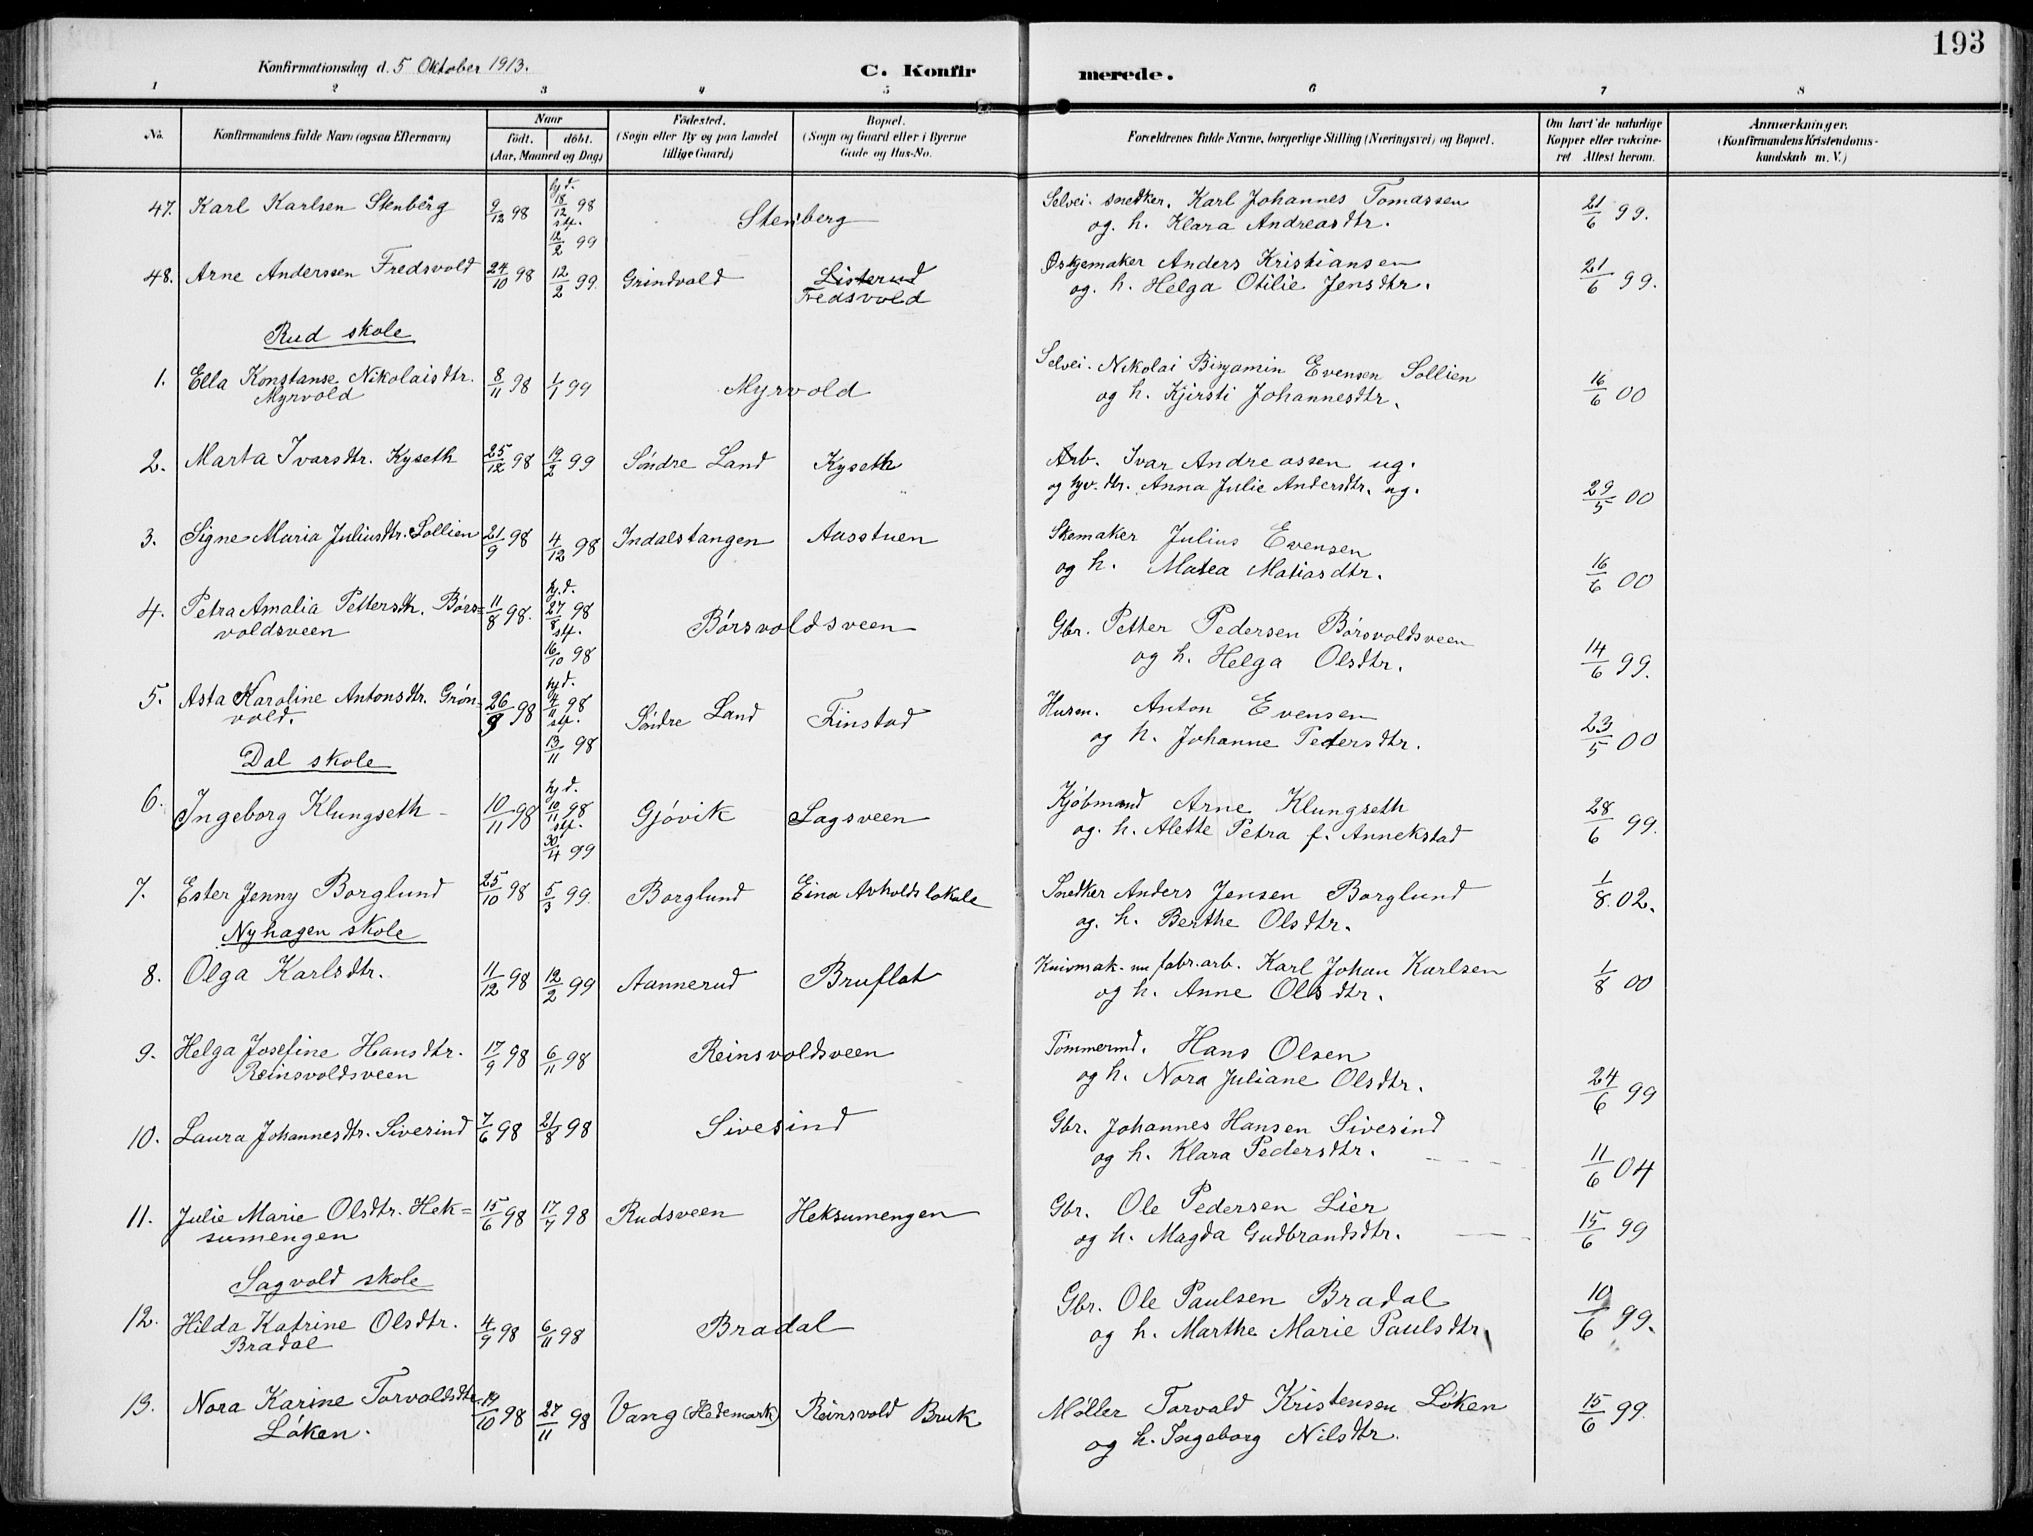 193
Konfirmationsdag d. 5 Oktober 1913.
C. Konfirmerede.
1 2 3 4 5 6 7 8
No. Konfirmandens fulde Navn (ogsaa Efternavn) Naar født. døbt. (Aar, Maaned og Dag) Fødested. (Sogn eller By og paa Landet tillige Gaard) Bopæl. (Sogn og Gaard eller i Byerne Gade og Hus-No. Forældrenes fulde Navne, borgerlige Stilling (Næringsvei) og Bopæl. Om havt de naturlige Kopper eller vaccineret Attest herom. Anmærkninger. (Konfirmandens Kristendomskundskab m. V.)
47. Karl Karlsen Stenberg 9/12 98 hj.d. 18/12 98 stf. 12/2 99 Stenberg Selvei. snedker. Karl Johannes Tomassen 21/6 99.
og. h. Klara Andreasdtr.
48. Arne Anderssen Fredsvold 24/10 98 12/2 99. Grindvold Listerud Øskjemaker Anders Kristiansen 21/6 99.
Fredsvold og. h. Helga Otilie Jensdtr.
Rud skole
1. Ella Konstanse Nikolaisdtr. 8/11 98 1/1 99 Myrvold Selvei. Nikolai Binjamin Evensen Sollien 16/6 00
Myrvold og h. Kjersti Johannesdtr.
2. Marta Ivarsdtr. Kyseth 25/12 98 19/2 99 Søndre Land Kyseth Arb. Ivar Andreassen ug.
og tjv. dtr. Anna Julie Andersdtr. ug. 29/5 00
3. Signe Maria Juliusdtr. Sollien 21/9 98 4/12 98 Indalstangen Aasstuen Skemaker Julius Evensen
og h. Matea Matiasdtr. 16/6 00
4. Petra Amalia Pettersdtr. Børs= 11/8 98. hj.d. 27/8 98 stf. 16/10 98 Børsvoldsveen Gbr. Petter Pedersen Børsvoldsveen
voldsveen og h. Helga Olsdtr. 14/6 99.
5. Asta Karoline Antonsdtr. Grøn= 26/9 98 hj.d. 4/11 98 stf. 13/11 98 Søndre Land Finstad Husm. Anton Evensen
vold. og h. Johanne Petersdtr. 23/5 00
Dal skole
6. Ingeborg Klungseth 10/11 98 hj.d. 10/11 98 stf. 30/4 99 Gjøvik Lagsveen Kjøbmand Arne Klungseth 28/6 99.
og. h. Alette Petra f. Annekstad
7. Ester Jenny Borglund 25/10 98 5/3 99. Borglund Eina Avholdslokale Snedker Anders Jensen Borglund 1/8 02.
og. h. Berthe Olsdtr.
Nyhagen skole
8. Olga Karlsdtr. 11/12 98 12/2 99 Aannerud Bruflat Knivmak. nu fabr. arb. Karl Johan Karlsen 1/8 00
og h. Anne Olsdtr.
9. Helga Josefine Hansdtr. 17/9 98 6/11 98 Reinsvoldsveen Tømmermd. Hans Olsen
Reinsvoldsveen og h. Nora Juliane Olsdtr. 24/6 99
10. Laura Johannesdtr. Sivesind 7/6 98 21/8 98 Sivesind Gbr. Johannes Hansen Sivesind
og h. Klara Pedersdtr. 11/6 04
11. Julie Marie Olsdtr. Hek= 15/6 98 17/7 98 Rudsveen Heksumengen Gbr. Ole Pedersen Lier
sumengen og h. Magda Gudbrandsdtr. 15/6 99
Sagvold skole
12. Hilda Katrine Olsdtr. 4/9 98 6/11 98 Bradal Gbr. Ole Paulsen Bradal 10/6 99.
Bradal og h. Marthe Marie Paulsdtr.
13. Nora Karine Torvoldsdtr. 19/10 98 27/11 98 Vang (Hedemark) Reinsvold Bruk Møller Torvald Kristensen Løken 15/6 99.
Løken. og h. Ingeborg Nilsdtr.